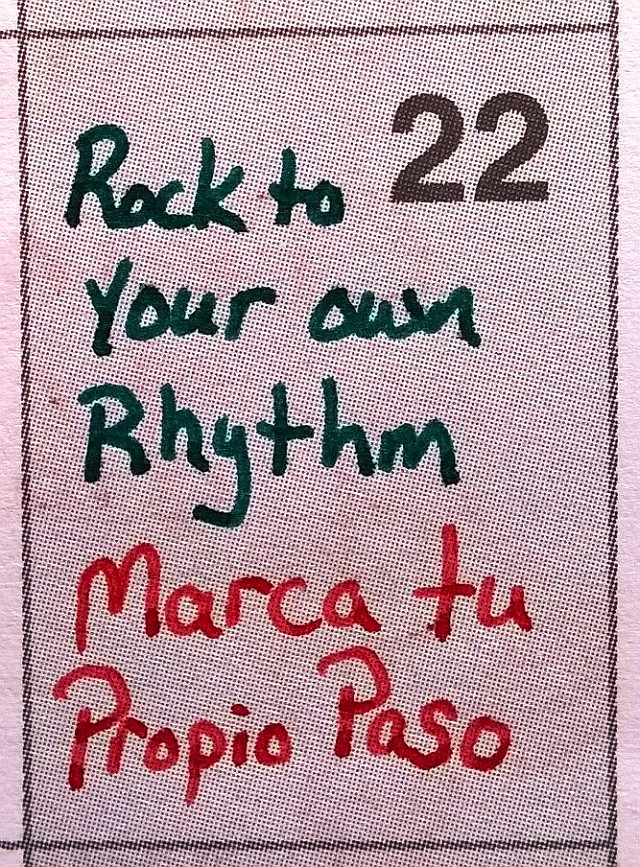 22
Rock to
your own
Rhythm
Marca tu
Propio Paso